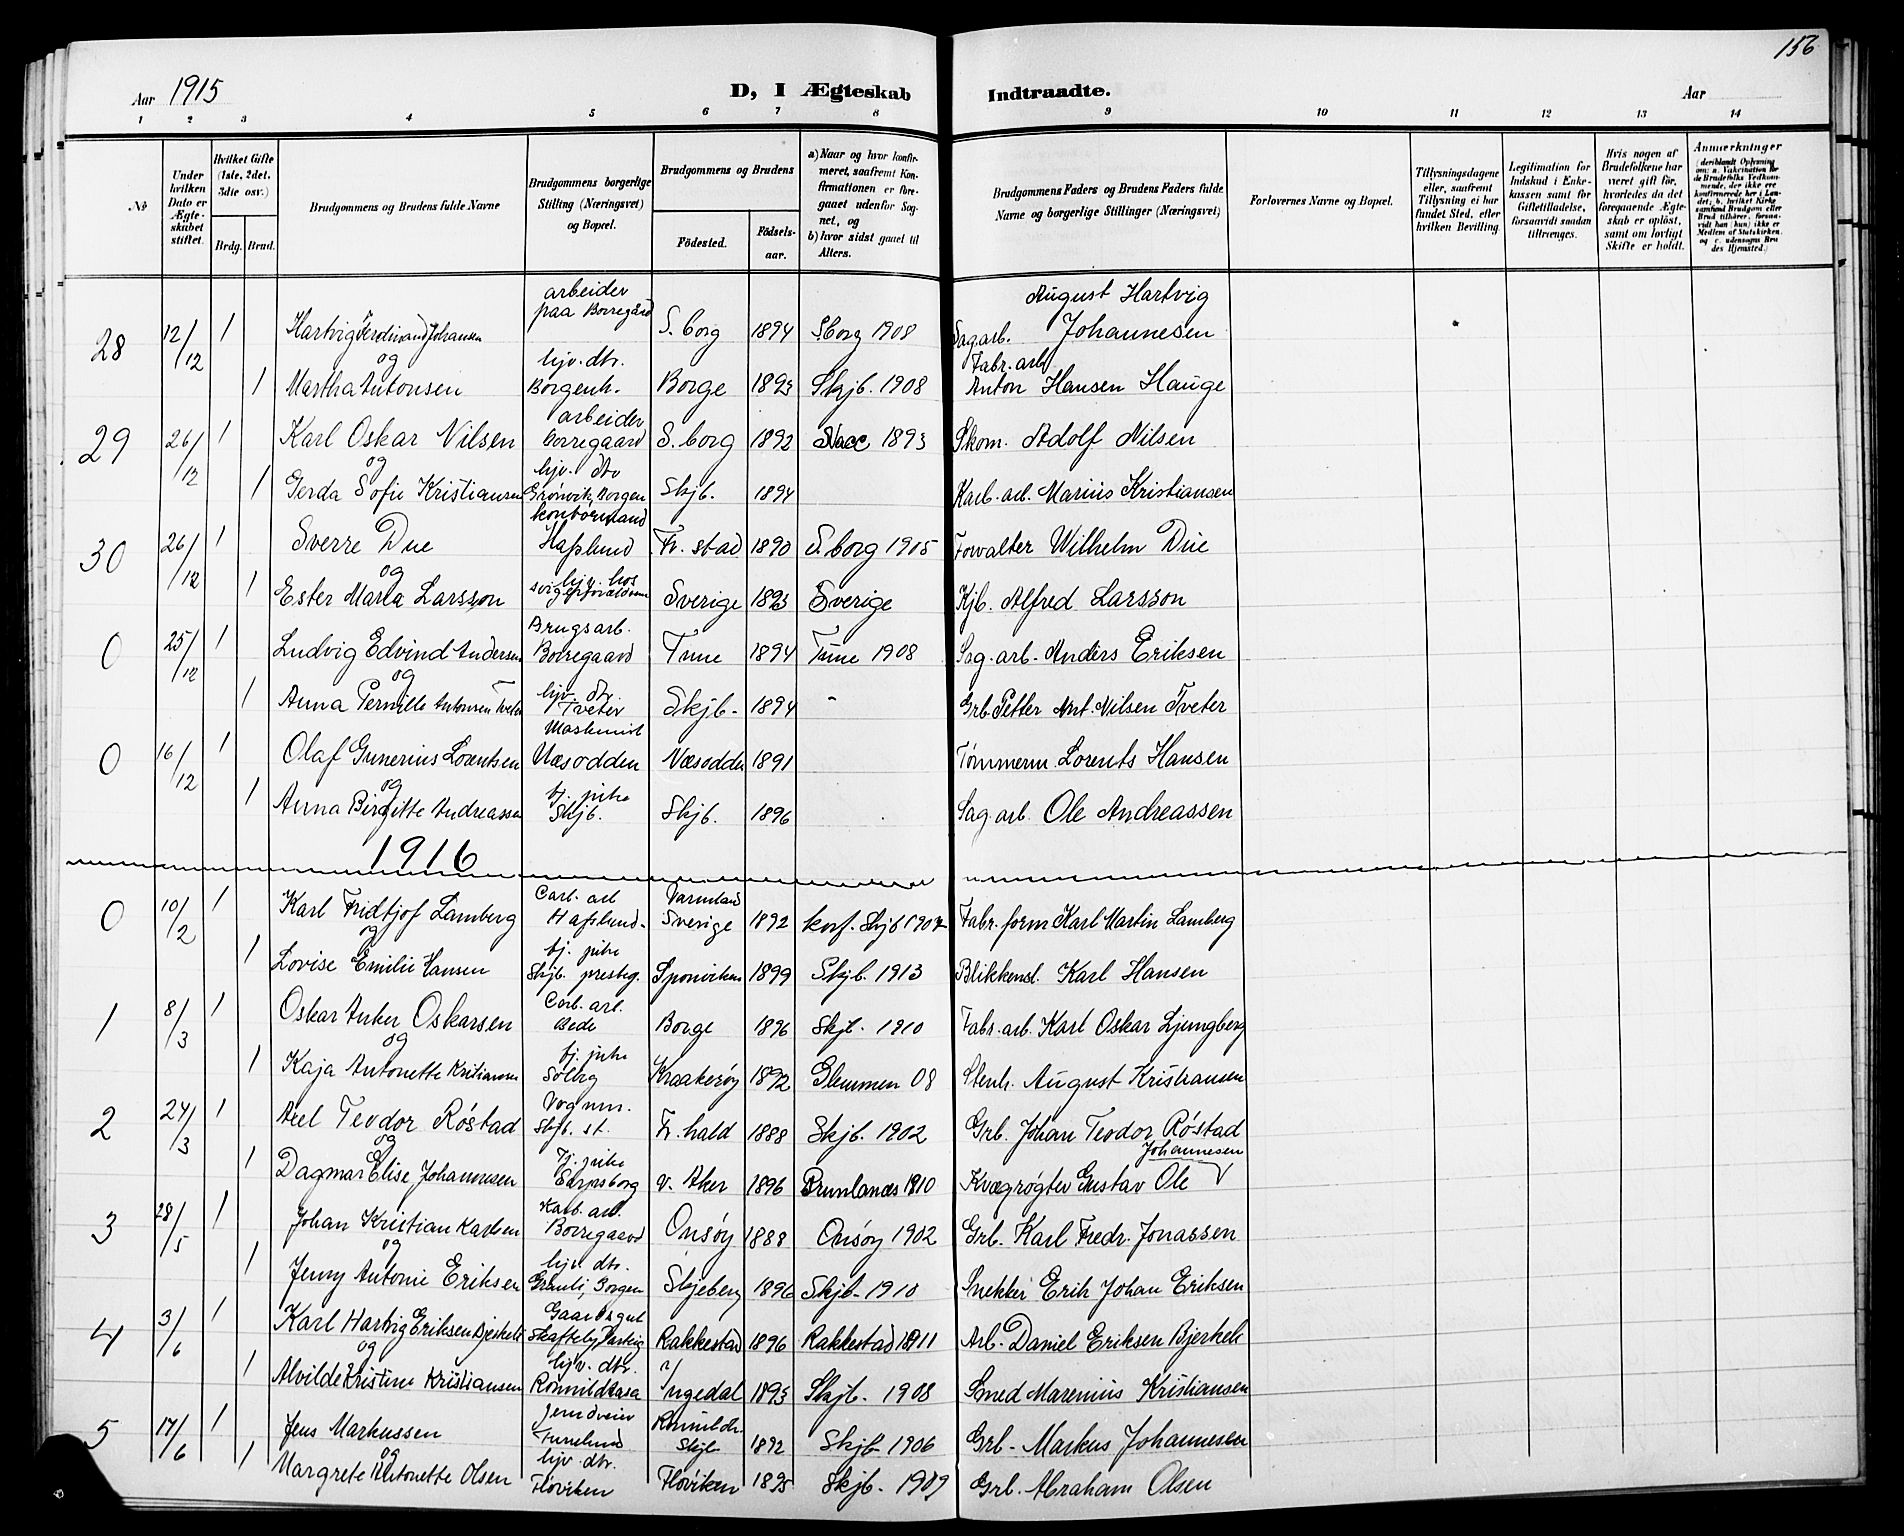 156
Aar 1915 D, I Ægteskab Indtraadte. Aar
1 2 3 4 5 6 7 8 9 10 11 12 13 14
No
Under hvilken Dato er Ægteskabet stiftet.
Hvilket Gifte (1ste, 2det, 3die osv.)
Brdg. Brud.
Brudgommens og Brudens fulde Navne
Brudgommens borgerlige Stilling (Næringsvei) og Bopæl.
Brudgommens og Brudens
Fødested. Fødsels-aar.
a) Naar og hvor konfirmeret, saafremt Konfirmationen er foregaaet udenfor Sognet, og
b) hvor sidst gaaet til Alters.
Brudgommens Faders og Brudens Faders fulde Navne og borgerlige Stillinger (Næringsvei)
Forlovernes Navne og Bopæl.
Tillysningsdagene eller, saafremt Tillysning ei har fundet Sted, efter hvilken Bevilling.
Legitimation for Indskud i Enkekassen samt for Giftetilladelse, forsaavidt saadan tiltrænges.
Hvis nogen af Brudefolkene har været gift før, hvorledes da det foregaaende Ægteskab er opløst, samt om lovligt Skifte er holdt.
Anmærkninger
(deriblandt Oplysning om: a. Vakcination for de Brudefolks Vedkommende, der ikke ere konfirmerede her i Landet; b. hvilket Kirkesamfund Brudgom eller Brud tilhører, forsaavidt han (hun) ikke er Medlem af Statskirken, og c. udensogns Brudes Hjemsted.)
arbeider paa Borregård August Hartvig
28 12/12 1 Hartvig Ferdinand Johansen S.borg 1894 S.borg 1908 Sagarb. Johannesen
og hjv. dtr. Fabr. arb.
1 Martha Antonsen Borgenh. Borge 1893 Skjb. 1908 Anton Hansen Hauge
arbeider
29 26/12 1 Karl Oskar Nilsen Borregaard S.borg 1892 1893 Skom. Adolf Nilsen
og hjv. dtr
1 Gerda Sofie Kristiansen Grønvik, Borgen Skjb. 1894 Karb. arb. Marius Kristiansen
kontormand
30 26/12 1 Sverre Due Hafslund Fr. stad 1890 S.borg 1905 Forvalter Wilhelm Due
og hjv. hos
1 Ester Maria Larsson svigerforældrene Sverige 1893 Sverige Kjb. Alfred Larsson
Brugsarb.
0 25/12 1 Ludvig Edvind Andersen Borregaard Tune 1894 Tune 1908 Sag. arb. Anders Eriksen
og hjv. dtr.
1 Anna Pernille Antonsen Tveter Tveter Skjb. 1894 " Grb. Petter Ant. Nilsen Tveter
Maskinist
0 16/12 1 Olaf Gunerius Lorentsen Næsodden Næsodden 1891 Tømmerm. Lorents Hansen
og tj. pike
1 Anna Birgitte Andreassen Skjb. Skjb. 1896 Sag. arb. Ole Andreassen
1916
Carb. arb Varmland
0 10/2 1 Karl Fridtjof Lamberg Hafslund. Sverige 1892 konf. Skjb 1907 Fabr. form Karl Martin Lamberg
og tj. pike
1 Lovise Emilie Hansen Skjb. presteg. Sponviken 1899 Skjb. 1913 Blikkensl. Karl Hansen
Carb. arb.
1 8/3 1 Oskar Anker Oskarsen Bede Borge 1896 Skjb. 1910 Fabr. arb. Karl Oskar Ljungberg
og tj. pike
1 Kaja Antonette Kristiansen Solberg Kraakerøy 1892 Glemmen 08 Stenh. August Kristiansen
Vognm.
2 24/3 1 Axel Teodor Røstad Skjb. st. Fr. hald 1888 Skjb. 1902 Grb. Johan Teodor Røstad
og Tj. pike Johannesen
1 Dagmar Elise Johannesen Sarpsborg v. Aker 1896 Brunlanes 1910 Kvægrøgter Gustav Ole
Karb. arb.
3 28/5 1 Johan Kristian Karlsen Borregaard Onsøy 1888 Onsøy 1902 Grb. Karl Fredr. Jonassen
og hjv. dtr.
1 Jenny Antonie Eriksen Grauli, Borgen Skjeberg 1896 Skjb. 1910 Snekker Erik Johan Eriksen
Gaardsgut
4 3/6 1 Karl Hartvig Eriksen Bjerkeli Skaftelig, Varteig Rakkestad 1896 Rakkestad 1911 Arb. Daniel Eriksen Bjerkeli
og hjv. dtr.
1 Alvilde Kristine Kristiansen Romildtasa Ingedal 1893 Skjb. 1908 Smed Marenius Kristiansen
5 17/6 1 Jens Markussen Tunelund Skjb. 1892 Skjb 1906 Grb. Markus Johannesen
og hjv. dtr.
1 Margrete Antonette Olsen Fløviken Fløviken 1895 Skjb. 1909 Grb. Abraham Olsen